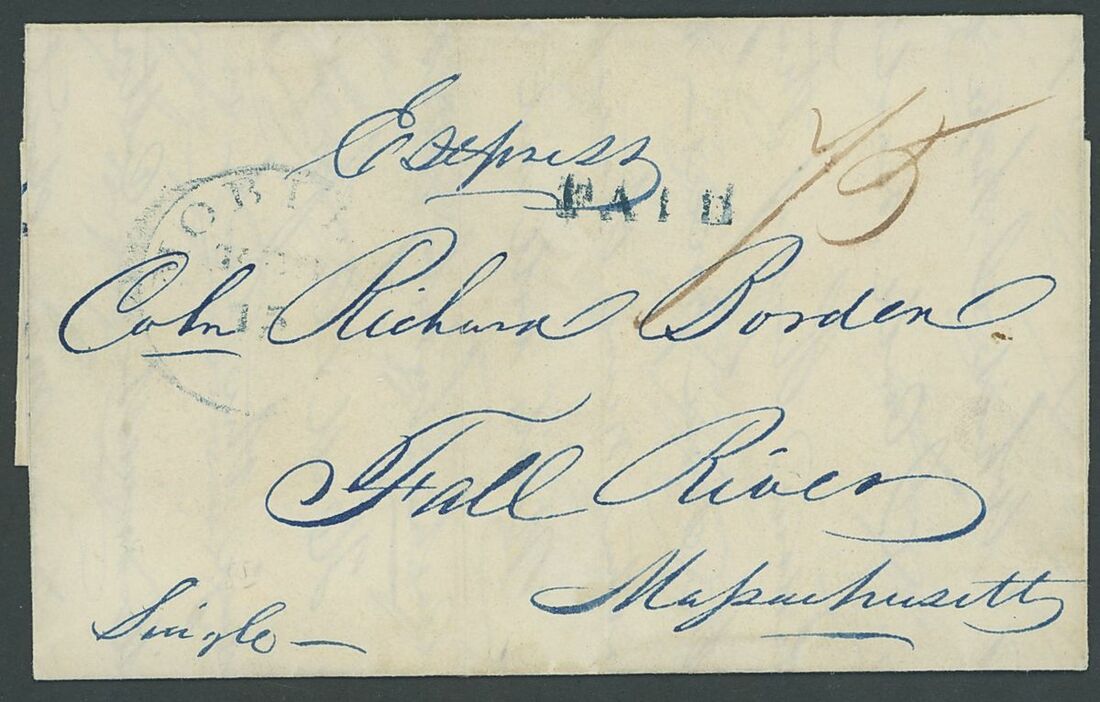 Express
PAID
75
MOBILE
13
Coln Richard Borden
Fall River
Massachusetts
Single